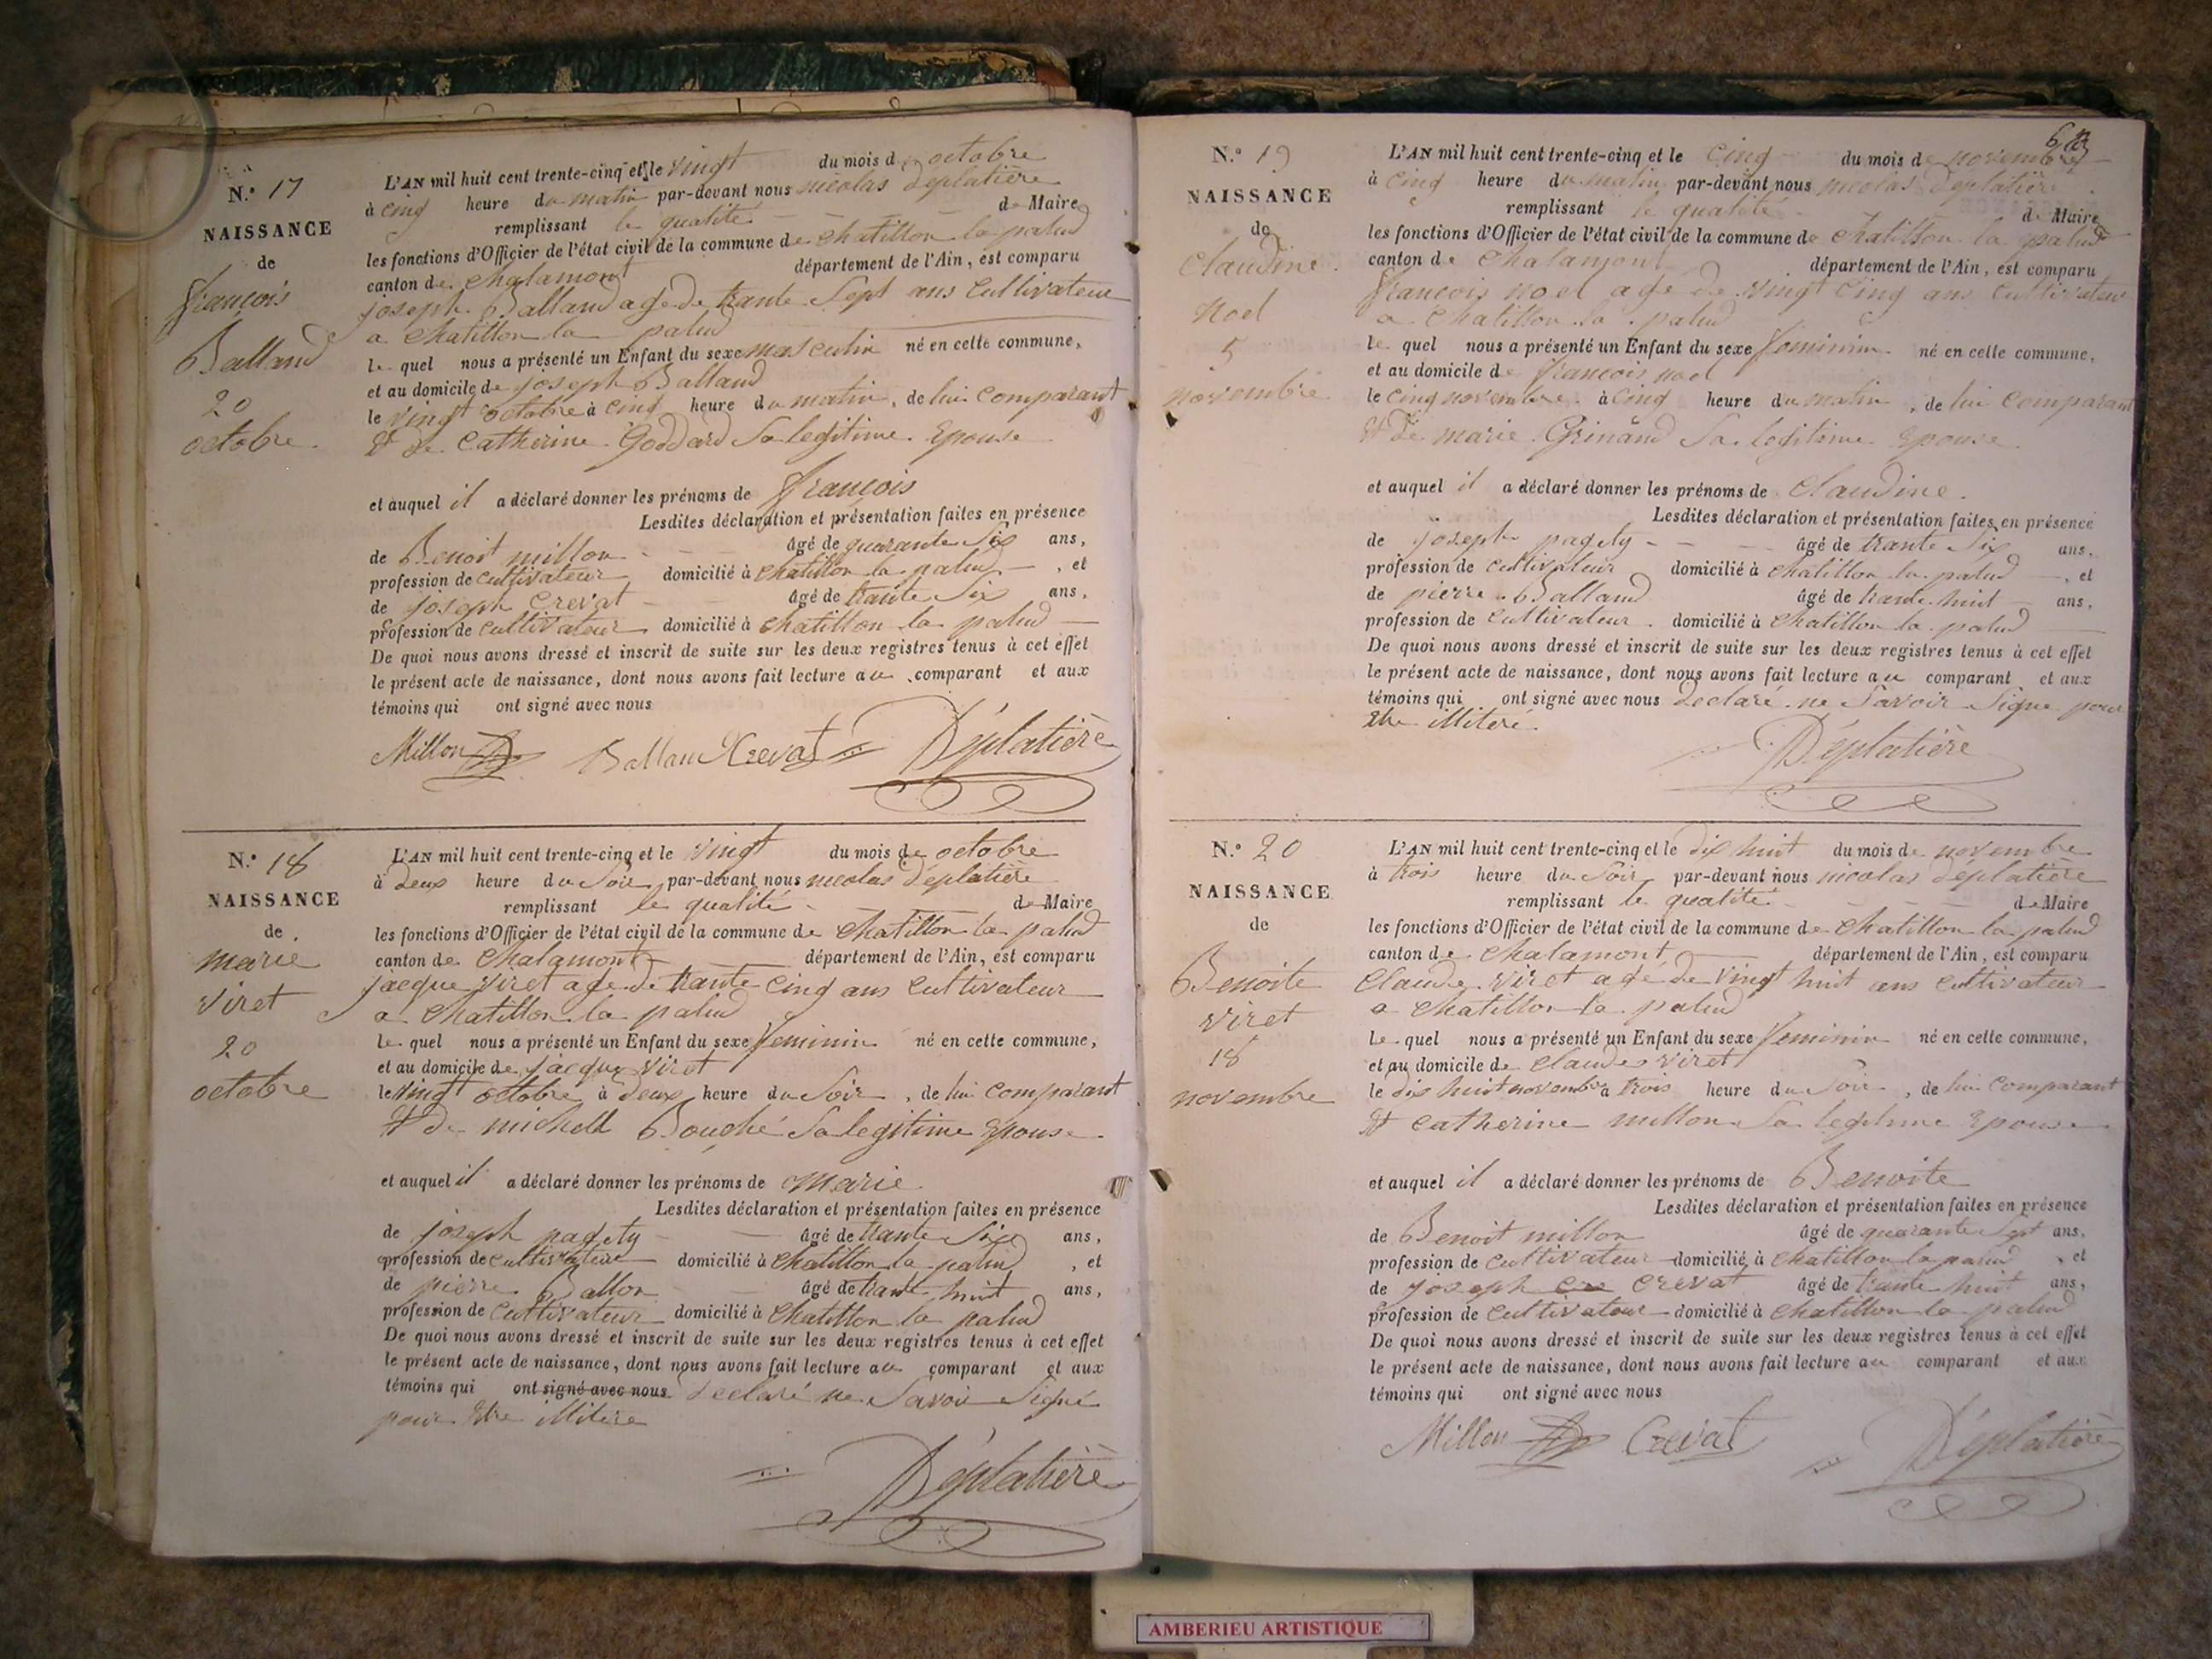 N.º 17
NAISSANCE
de
françois
Balland
20
octobre.
L'AN mil huit cent trente-cinq et le vingt du mois d octobre
à cinq heure du matin par-devant nous nicolas Déplatière
remplissant le qualité de Maire
les fonctions d'Officier de l'état civil de la commune de chatillon la palud
canton de chalamont département de l'Ain, est comparu
joseph Balland age de trante Sept ans Cultivateur
a chatillon la palud
le quel nous a présenté un Enfant du sexe masculin né en cette commune,
et au domicile de joseph Balland
le vingt octobre à cinq heure du matin, de lui comparant
et de Catherine Goddard Sa legitime Epouse
et auquel il a déclaré donner les prénoms de françois
Lesdites déclaration et présentation faites en présence
de Benoit millon âgé de quarante Six ans,
profession de cultivateur domicilié à chatillon la palud, et
de joseph Crevat âgé de trante Six ans,
profession de cultivateur domicilié à chatillon la palud
De quoi nous avons dressé et inscrit de suite sur les deux registres tenus à cet effet
le présent acte de naissance, dont nous avons fait lecture au comparant et aux
témoins qui ont signé avec nous
Millon Ballan Crevat Déplatière
N.º 18
NAISSANCE
de
marie
viret
20
octobre
L'AN mil huit cent trente-cinq et le vingt du mois de octobre
à deux heure du Soir par-devant nous nicolas Déplatière
remplissant le qualité de Maire
les fonctions d'Officier de l'état civil de la commune de chatillon la palud
canton de chalamont département de l'Ain, est comparu
jacque viret age de trante cinq ans cultivateur
a chatillon la palud
le quel nous a présenté un Enfant du sexe feminin né en cette commune,
et au domicile de jacque viret
le vingt octobre à deux heure du Soir, de lui comparant
et de michell Bouché Sa legitime Epouse
et auquel il a déclaré donner les prénoms de marie
Lesdites déclaration et présentation faites en présence
de joseph pagety âgé de trante Six ans,
profession de cultivateur domicilié à chatillon la palud, et
de pierre Ballon âgé de trante huit ans,
profession de cultivateur domicilié à chatillon la palud
De quoi nous avons dressé et inscrit de suite sur les deux registres tenus à cet effet
le présent acte de naissance, dont nous avons fait lecture au comparant et aux
témoins qui ont signé avec nous declaré ne Savoir Signé
pour Etre illitere
Déplatière
N.º 19
NAISSANCE
de
Claudine
Noel
5
novembre
L'AN mil huit cent trente-cinq et le cinq du mois de novembre
à cinq heure du matin par-devant nous nicolas Deplatière
remplissant le qualité de Maire
les fonctions d'Officier de l'état civil de la commune de chatillon la palud
canton de chalamont département de l'Ain, est comparu
françois noel age de vingt cinq ans cultivateur
a chatillon la palud
le quel nous a présenté un Enfant du sexe feminin né en cette commune,
et au domicile de françois noel
le cinq novembre à cinq heure du matin, de lui comparant
et de marie Grinand Sa legitime Epouse
et auquel il a déclaré donner les prénoms de Claudine.
Lesdites déclaration et présentation faites en présence
de joseph pagety âgé de trante Six ans,
profession de cultivateur domicilié à chatillon la palud, et
de pierre Balland âgé de trante huit ans,
profession de cultivateur domicilié à chatillon la palud
De quoi nous avons dressé et inscrit de suite sur les deux registres tenus à cet effet
le présent acte de naissance, dont nous avons fait lecture au comparant et aux
témoins qui ont signé avec nous declaré ne Savoir Signe pour
Etre illiteré
Déplatière
N.º 20
NAISSANCE
de
Benoite
viret
18
novembre
L'AN mil huit cent trente-cinq et le dix huit du mois de novembre
à trois heure du Soir par-devant nous nicolas déplatière
remplissant le qualité de Maire
les fonctions d'Officier de l'état civil de la commune de chatillon la palud
canton de chalamont département de l'Ain, est comparu
claude viret agé de vingt huit ans cultivateur
a chatillon la palud
le quel nous a présenté un Enfant du sexe feminin né en cette commune,
et au domicile de claude viret
le dix huit novembre à trois heure du Soir, de lui comparant
et catherine millon Sa legitime Epouse
et auquel il a déclaré donner les prénoms de Benoite
Lesdites déclaration et présentation faites en présence
de Benoit millon âgé de quarante Sept ans,
profession de cultivateur domicilié à chatillon la palud, et
de joseph cre crevat âgé de trante huit ans,
profession de cultivateur domicilié à chatillon la palud
De quoi nous avons dressé et inscrit de suite sur les deux registres tenus à cet effet
le présent acte de naissance, dont nous avons fait lecture au comparant et aux
témoins qui ont signé avec nous
Millon Crevat Déplatière
AMBERIEU ARTISTIQUE